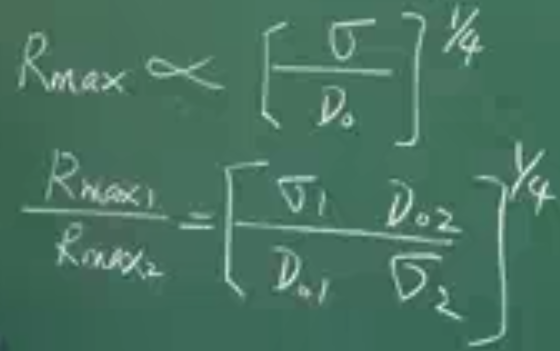 R_max ∝ [σ / D_0]^{1/4}
R_max1 / R_max2 = [σ_1 D_02 / D_01 σ_2]^{1/4}